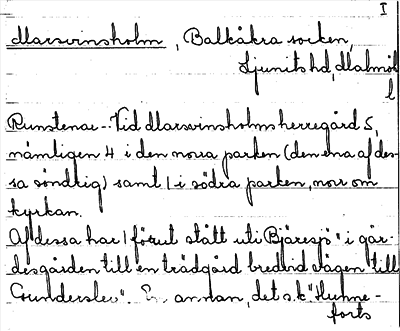 I
Marsvinsholm, Balkåkra socken,
Ljunits hd, Malmöh
l
Runstenar. Vid Marsvinsholms herregård 5,
nämligen 4 i den norra parken (den ena af des-
sa söndrig) samt 1 i södra parken, norr om
kyrkan.
Af dessa har 1 förut stått uti Bjäresjö "i går-
desgården till en trädgård bredvid vägen till
Gunderslev". En annan, det s.k. "Hunne-
forts